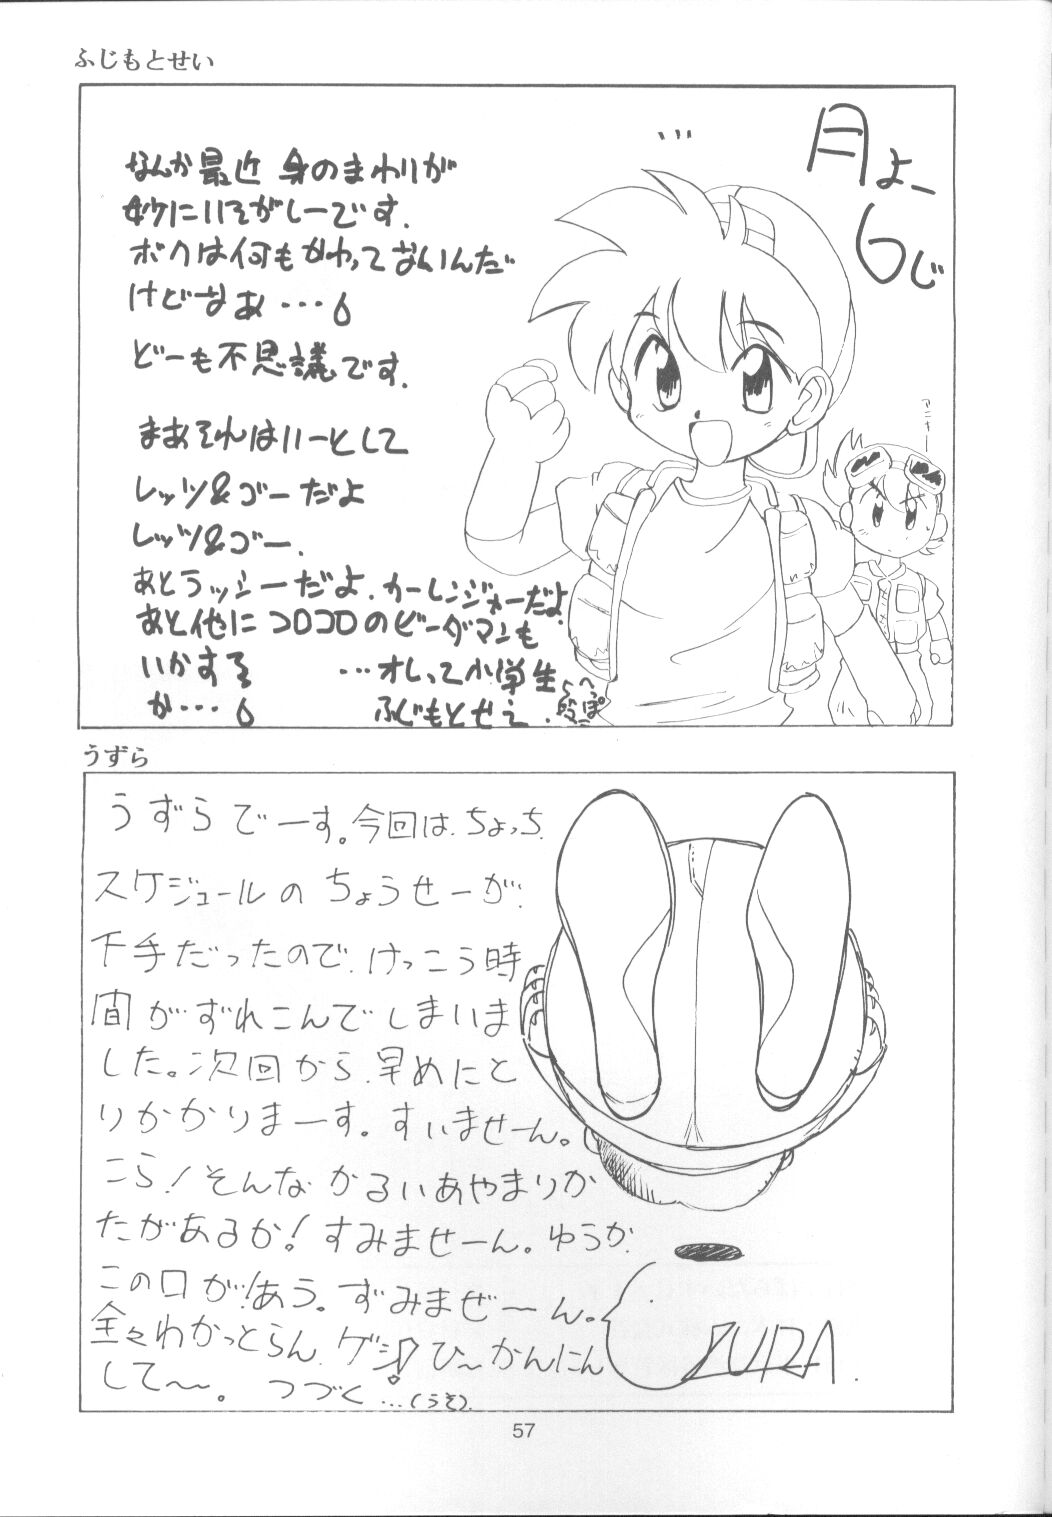 ふじもとせい
月よー
6じ
なんか最近 身のまわりが
妙にいそがしーです.
ボクは何もかわってないんだ
けどなあ・・・
どーも不思議です.
まあそれはいーとして
レッツ&ゴーだよ
レッツ&ゴー.
あとラッシーだよ.カーレンジャーだよ.
あと他にコロコロのビーダマンも
いかする
か・・・
…オレって小学生
ふじもとせえ.
アニキー
うずら
うずらでーす。今回は、ちょっち、
スケジュールのちょうせーが、
下手だったので、けっこう時
間がずれこんでしまいま
した。次回から、早めにと
りかかりまーす。すいませーん。
こら!そんなかるいあやまりか
たがあるか!すみませーん。ゆうか、
この口が!あう。ずみまぜ〜ん。
全々わかっとらん、ゲシ!ひ〜かんにん
して〜。 つづく…(うそ).
ZURA.
57